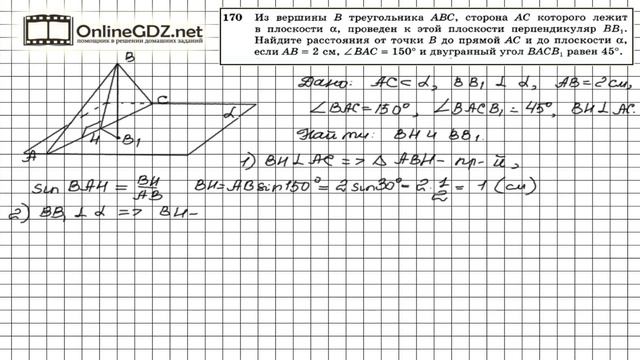 OnlineGDZ.net
помощник в решении домашних заданий
170 Из вершины B треугольника ABC, сторона AC которого лежит
в плоскости α, проведен к этой плоскости перпендикуляр BB₁.
Найдите расстояния от точки B до прямой AC и до плоскости α,
если AB = 2 см, ∠BAC = 150° и двугранный угол BACB₁ равен 45°.
Дано: AC ⊂ α, BB₁ ⊥ α, AB = 2 см,
∠BAC = 150°, ∠BACB₁ = 45°, BH ⊥ AC.
Найти: BH и BB₁.
B
C
α
H
B₁
A
1) BH ⊥ AC => △ ABH – пр-й,
sin BAH = BH/AB BH = AB sin 150° = 2 sin 30° = 2 · 1/2 = 1 (см)
2) BB₁ ⊥ α => BH –